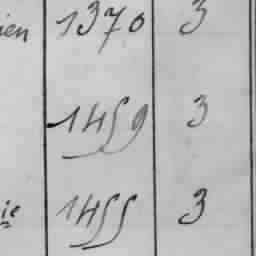 ien 1370 3
1459 3
ie 1455 3